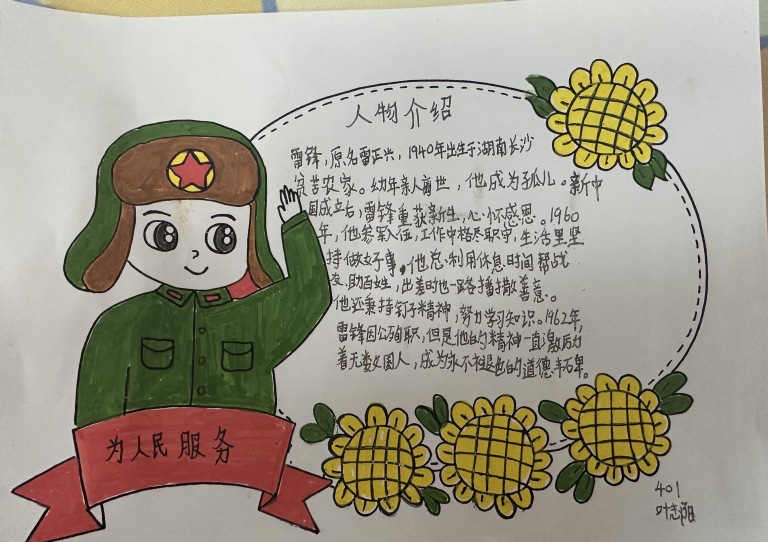 人物介绍
雷锋，原名雷正兴，1940年出生于湖南长沙
贫苦农家。幼年亲人离世，他成为孤儿。新中
国成立后，雷锋重获新生，心怀感恩。1960
年，他参军入伍，工作中恪尽职守，生活里坚
持做好事，他总利用休息时间帮战
友、助百姓，出差时也一路播撒善意。
他还秉持钉子精神，努力学习知识。1962年，
雷锋因公殉职，但是他的精神一直激励
着无数国人，成为永不褪色的道德丰碑。
为人民服务
401
叶志